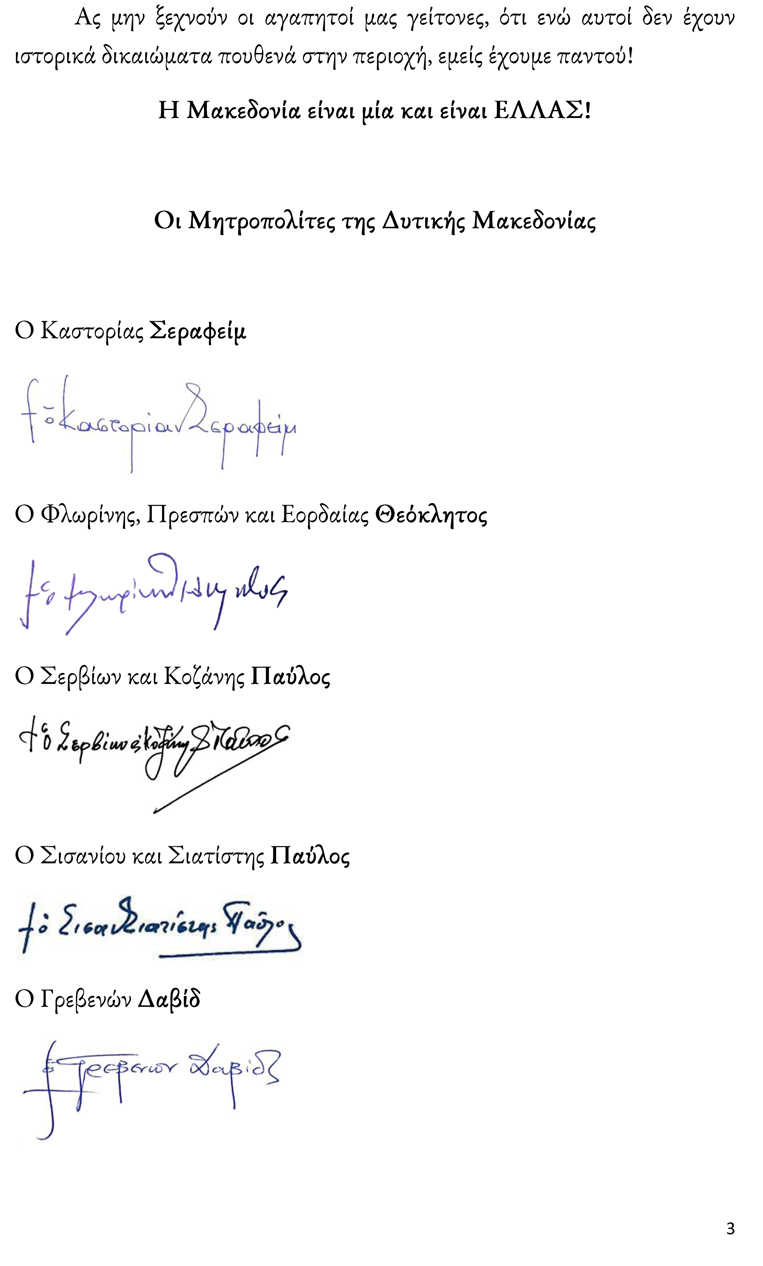 Ας μην ξεχνούν οι αγαπητοί μας γείτονες, ότι ενώ αυτοί δεν έχουν
ιστορικά δικαιώματα πουθενά στην περιοχή, εμείς έχουμε παντού!
Η Μακεδονία είναι μία και είναι ΕΛΛΑΣ!
Οι Μητροπολίτες της Δυτικής Μακεδονίας
Ο Καστορίας Σεραφείμ
ὁ Καστορίας Σεραφείμ
Ο Φλωρίνης, Πρεσπών και Εορδαίας Θεόκλητος
Ο Σερβίων και Κοζάνης Παύλος
Ο Σισανίου και Σιατίστης Παύλος
Ο Γρεβενών Δαβίδ
Γρεβενών Δαβίδ
3